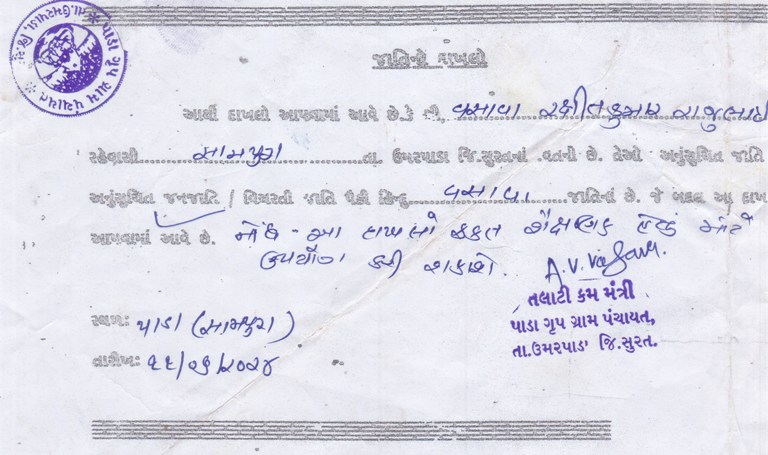 જાતિનો દાખલો
આથી દાખલો આપવામાં આવે છે.કે શ્રી, વસાવા રક્ષીતકુમાર રાજુભાઈ
રહેવાસી સામપુરા તા. ઉમરપાડા જિ.સુરતનાં વતની છે. તેઓ અનુસુચિત જાતિ
અનુંસુચિત જનજાતિ / વિચરતી જાતિ પૈકી હિન્દુ વસાવા જાતિનાં છે. જે બદલ આ દાખ
આપવામાં આવે છે. નોંધ - આ દાખલો ફકત શૈક્ષણિક હેતું માટે
ઉપયોગ કરી શકાશે.
A.V.Vasava
તલાટી કમ મંત્રી
પાડા ગૃપ ગ્રામ પંચાયત,
તા.ઉમરપાડા જિ.સુરત.
સ્થળ: પાડા (સામપુરા)
તારીખ: /૨૦૨૪
પાડા ગૃપ ગ્રામ પંચાયત * તા.ઉમરપાડા, જિ.સુરત *